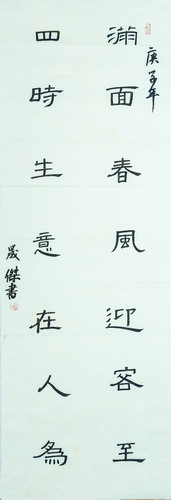 庚子年
滿面春風迎客至
四時生意在人為
晟傑書